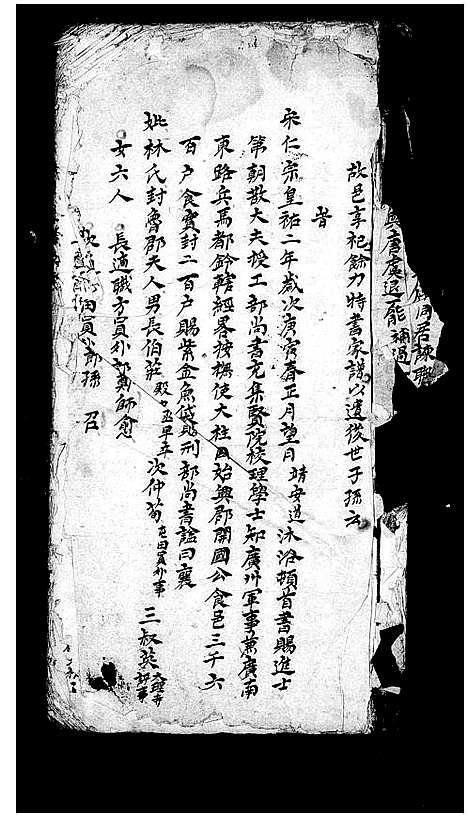 與唐虞退罷補過
故邑享祀餘力特書家譜以遺後世子孫云
昔
宋仁宗皇祐二年歲次庚寅春正月望日靖安道沐浴頓首書賜進士
第朝散大夫授工部尚書充集賢院校理學士知廣州軍事兼廣南
東路兵馬都鈐轄經畧按撫使大柱國始興郡開國公食邑三千六
百户食實封二百户賜紫金魚袋贈刑部尚書謚曰襄
妣林氏封魯郡夫人男長伯莊殿中丞早卒次仲荀屯田員外事三叔英大理寺評事
女六人 長適職方員外郎鄭師愈
次適 田員外郎孫召